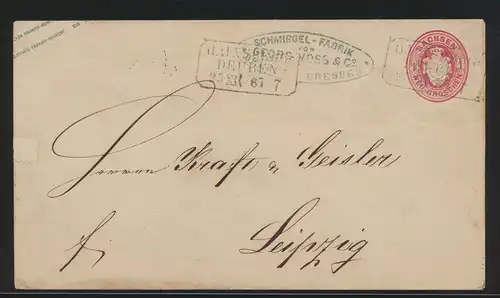 SCHMIRGEL-FABRIK
VON
GEORG VOSS & Co
DRESDEN
DEUBEN
67 7
SACHSEN
NEU-GROSCHEN
Herren Kraft & Geisler
fr.
Leipzig